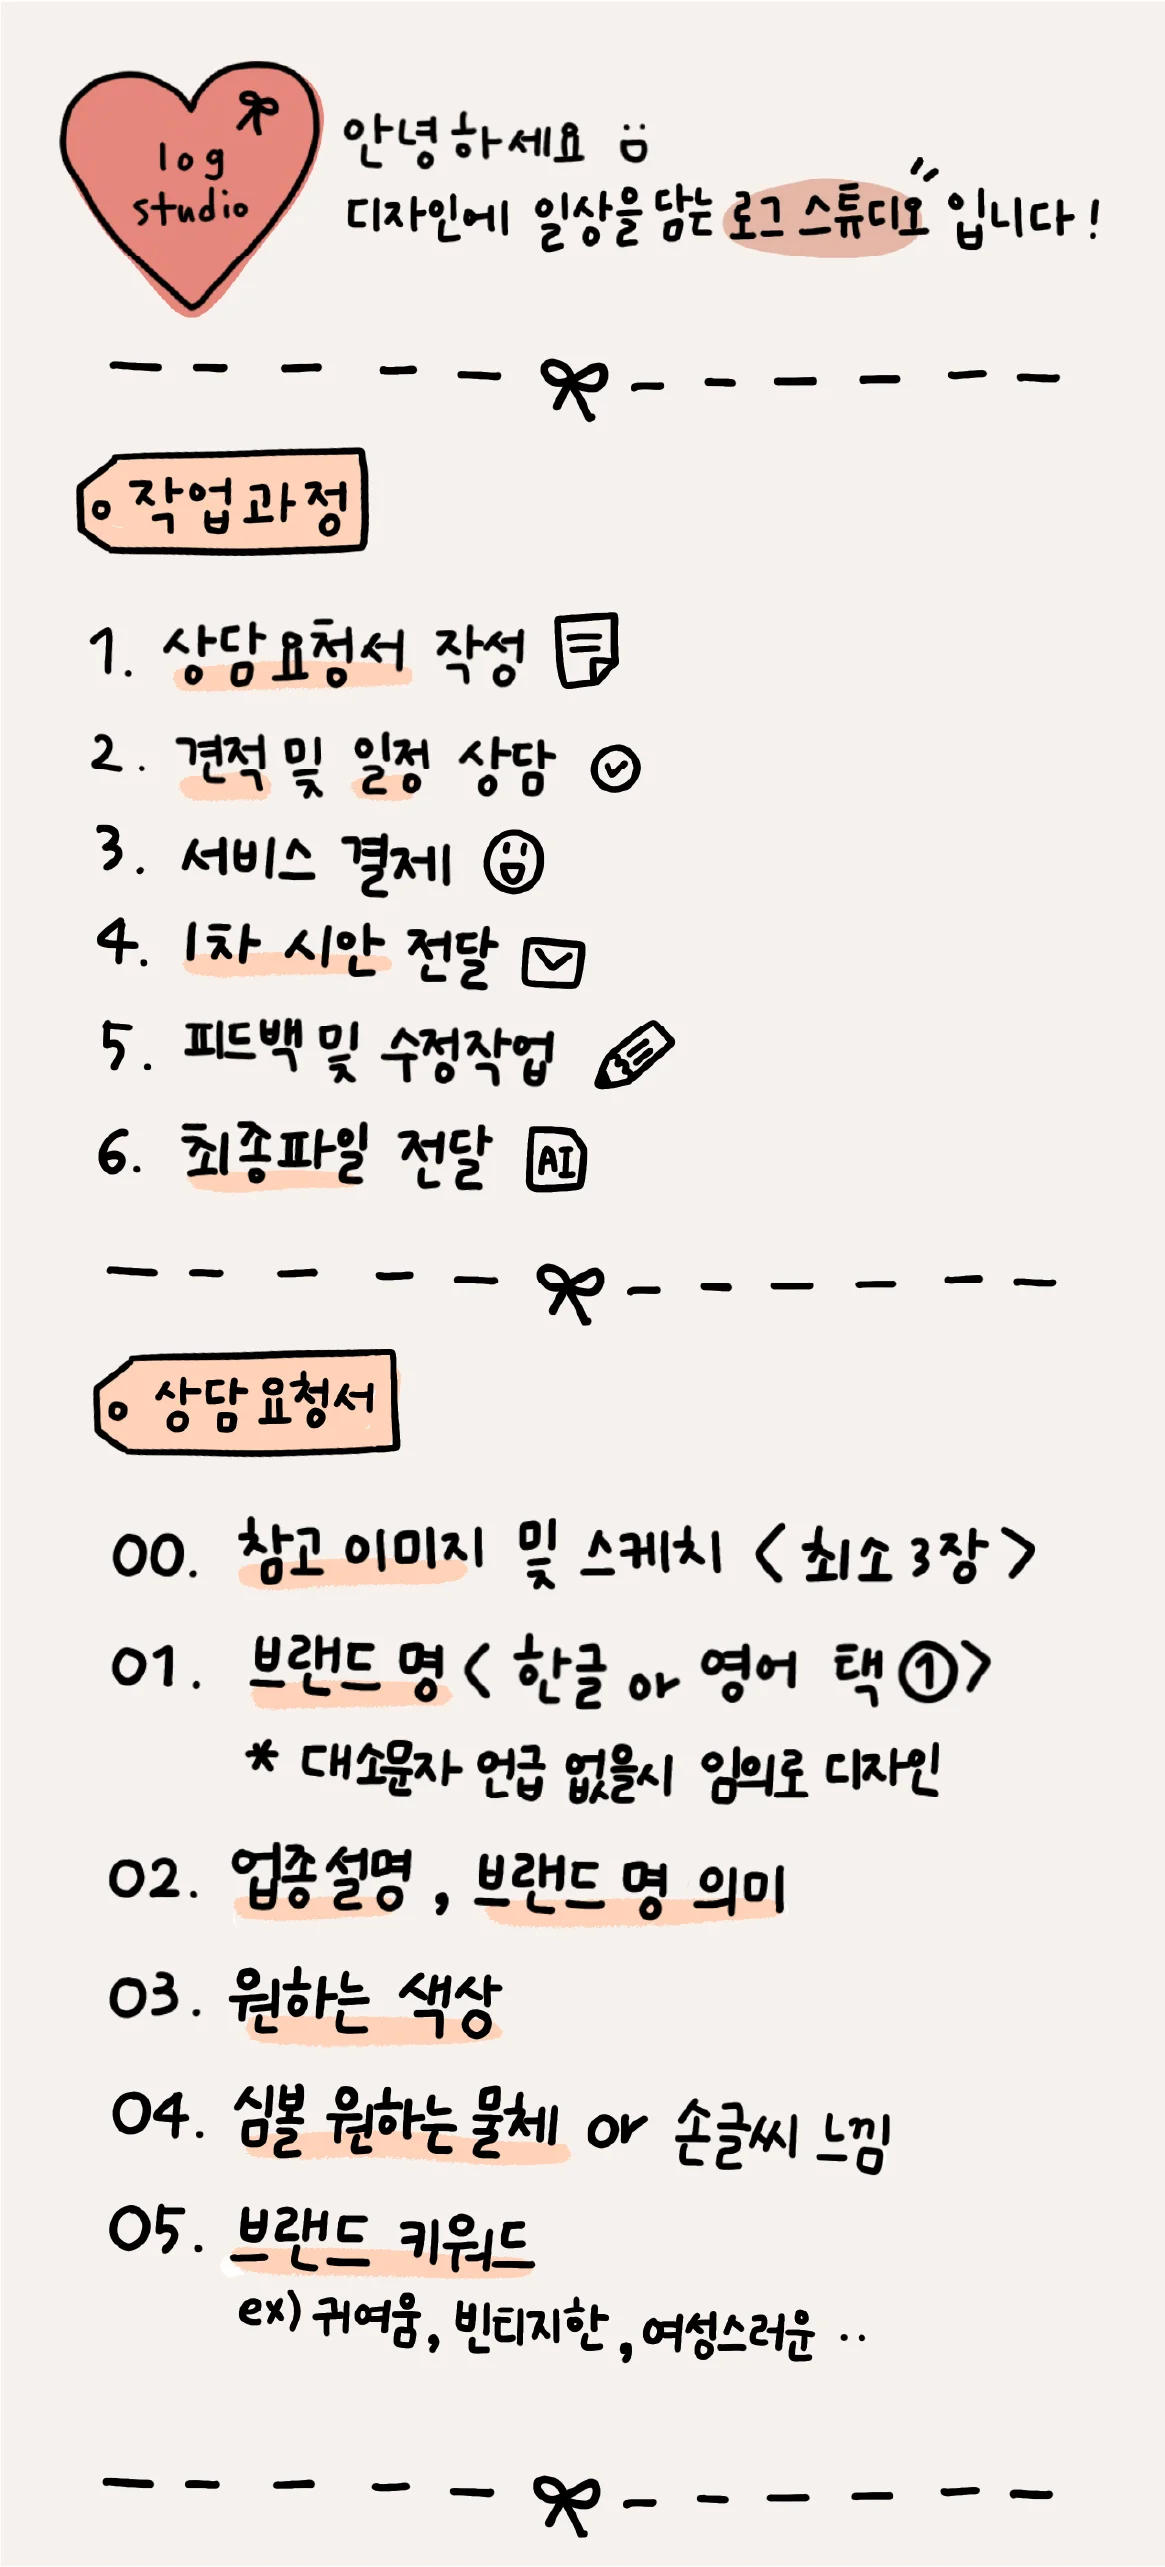 log
studio
안녕하세요
디자인에 일상을 담는 로그 스튜디오 입니다!
작업과정
1. 상담요청서 작성
2. 견적 및 일정 상담
3. 서비스 결제
4. 1차 시안 전달
5. 피드백 및 수정작업
6. 최종파일 전달 AI
상담요청서
00. 참고 이미지 및 스케치 <최소 3장>
01. 브랜드 명 <한글 or 영어 택①>
* 대소문자 언급 없을시 임의로 디자인
02. 업종설명, 브랜드 명 의미
03. 원하는 색상
04. 심볼 원하는 물체 or 손글씨 느낌
05. 브랜드 키워드
ex) 귀여움, 빈티지한, 여성스러운 ..